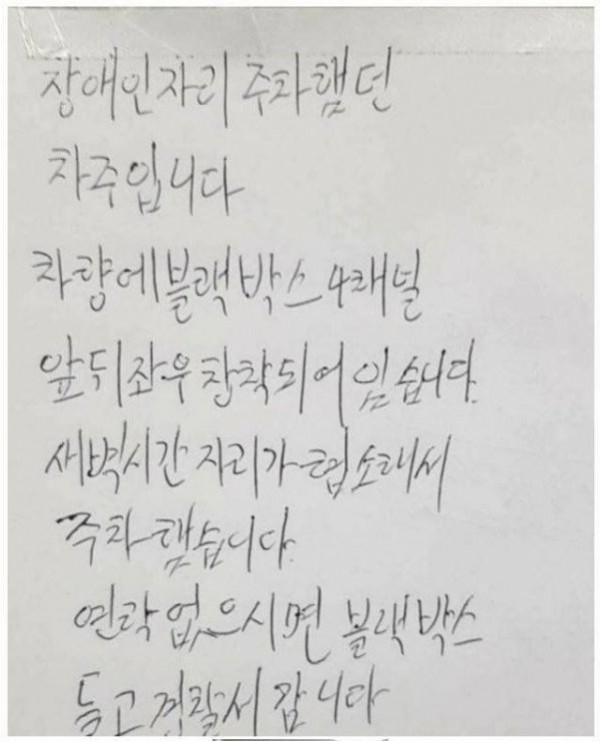 장애인자리 주차햄던
차주입니다
차량에블랙박스 4채널
앞뒤좌우 장착되어 있습니다.
새벽시간 자리가 협소해서
주차 했습니다.
연락없으시면 블랙박스
들고 경찰서 갑니다